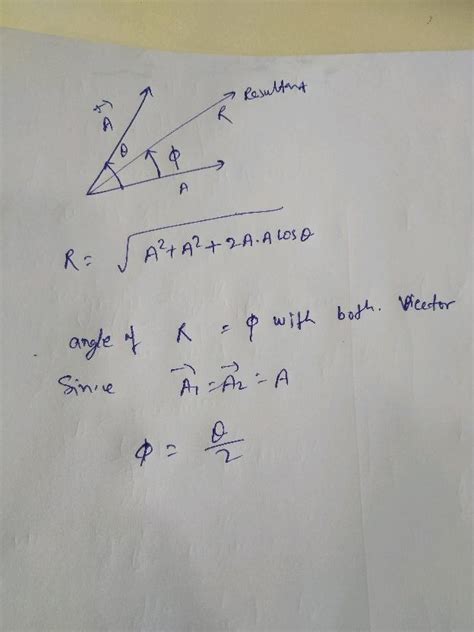 Resultant
A⃗
R
θ
ϕ
A
R = √A²+A²+2A·A cosθ
angle of R = ϕ with both. Vicetor
Since A⃗₁ = A⃗₂ = A
ϕ = θ/2